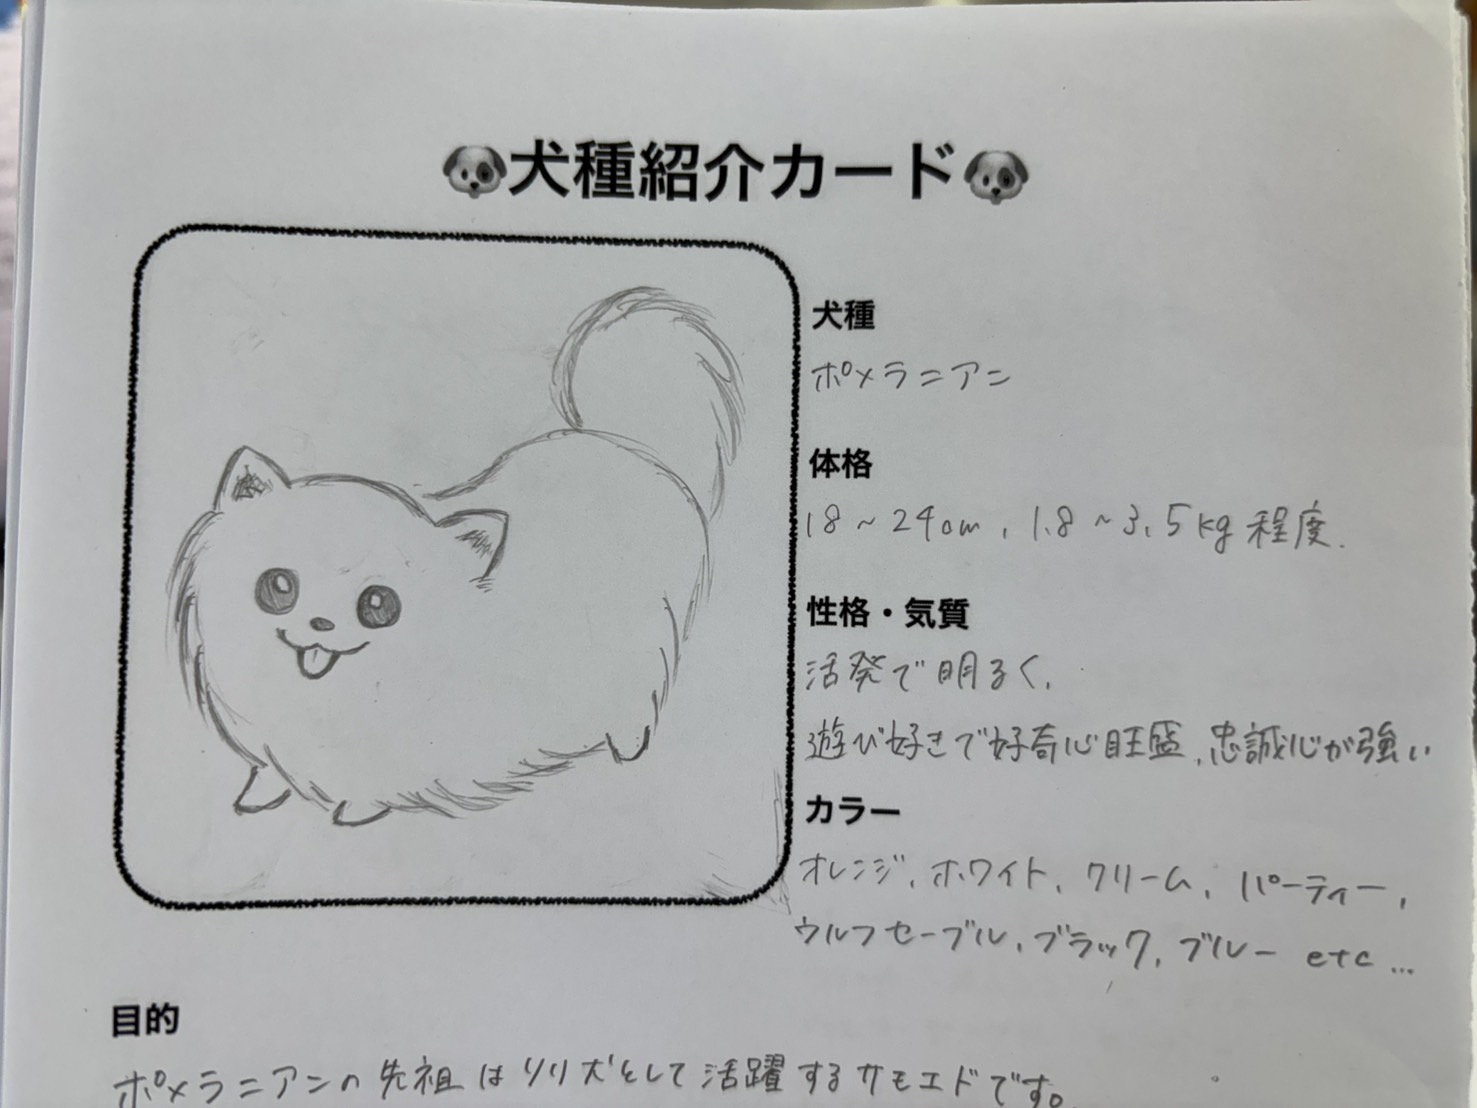 🐶犬種紹介カード🐶
犬種
ポメラニアン
体格
18~24cm, 1.8~3.5kg程度.
性格・気質
活発で明るく、
遊び好きで好奇心旺盛、忠誠心が強い
カラー
オレンジ、ホワイト、クリーム、パーティー、
ウルフセーブル、ブラック、ブルー etc...
目的
ポメラニアンの先祖はソリ犬として活躍するサモエドです。